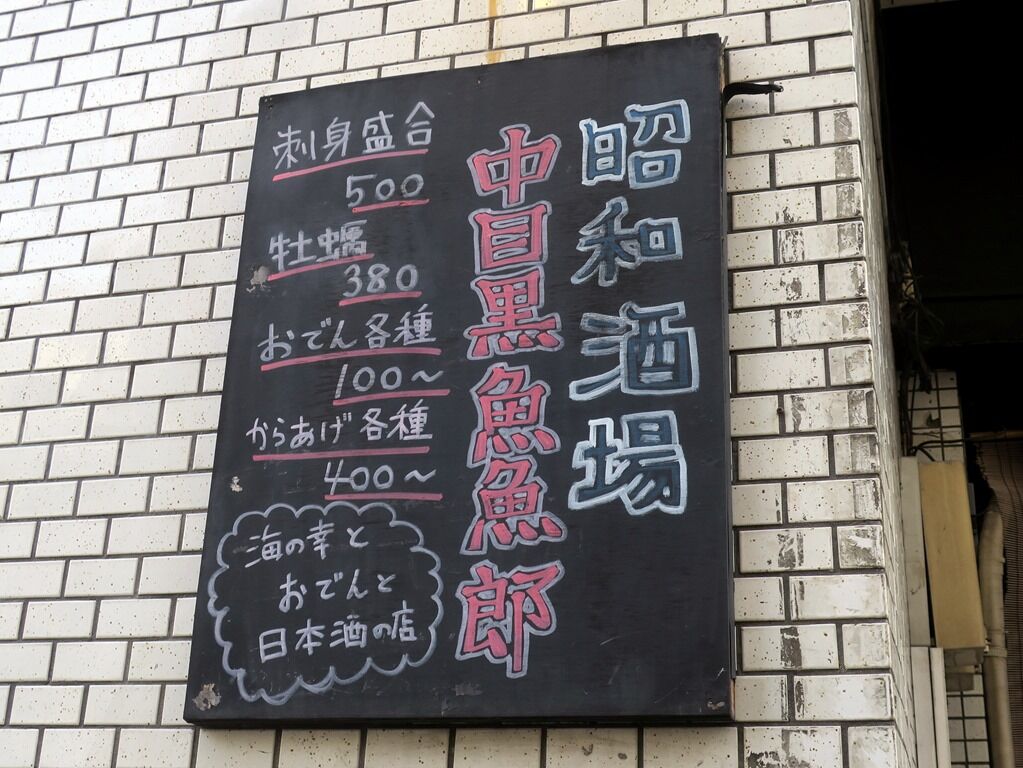 昭和酒場
中目黒魚魚郎
刺身盛合
500
牡蠣
380
おでん各種
100～
からあげ各種
400～
海の幸と
おでんと
日本酒の店